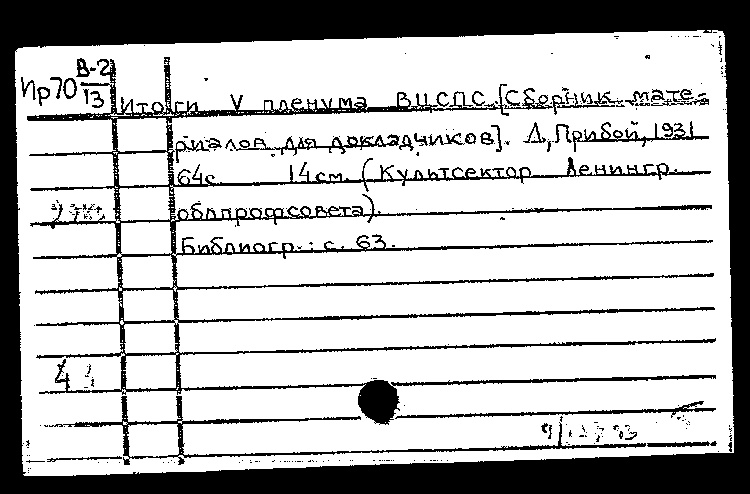 Ир70 В-2/13
Итоги V пленума ВЦСПС. [Сборник мате-
риалов для докладчиков]. Л, Прибой, 1931
64с 14см. (Культсектор Ленингр.
облпрофсовета).
Библиогр.: с. 63.
4